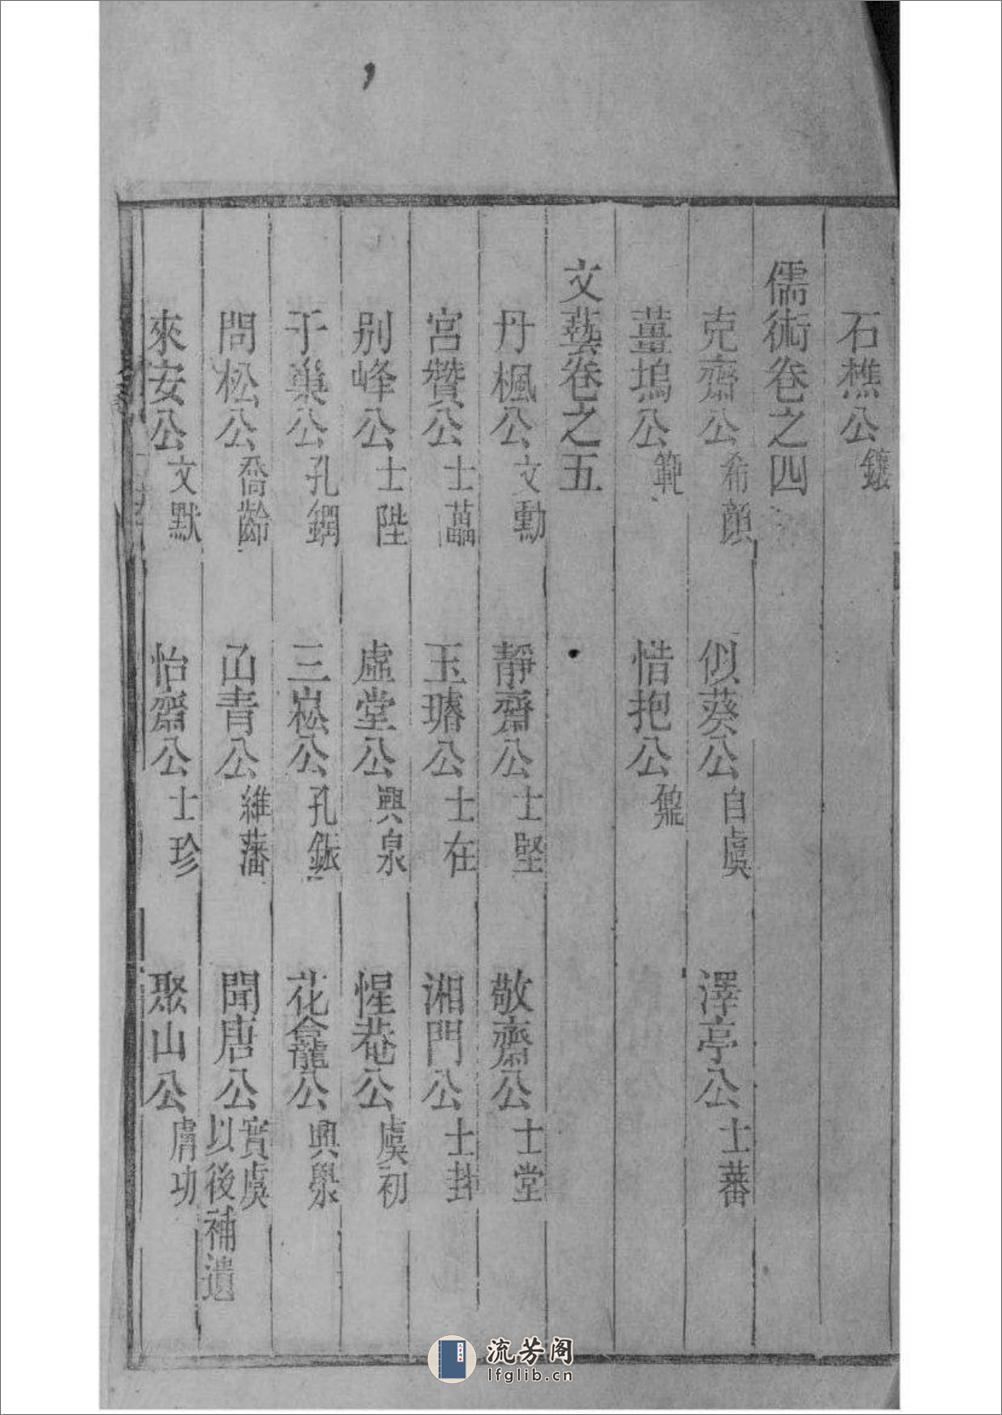 石樵公 鑲
儒術卷之四
克齋公 希顏 似葵公 自虞 澤亭公 士蕃
薑塢公 範 惜抱公 鼐
文藝卷之五
丹楓公 文勳 靜齋公 士堅 敬齋公 士堂
宮贊公 士藟 玉璿公 士在 湘門公 士封
别峰公 士陛 虛堂公 興泉 惺菴公 虔初
于巢公 孔鐧 三崧公 孔鋠 花龕公 興澩
問松公 喬齡 函青公 維藩 聞唐公 實虔 以後補遺
來安公 文默 怡齋公 士珍 聚山公 膚功
流芳阁
lfglib.cn